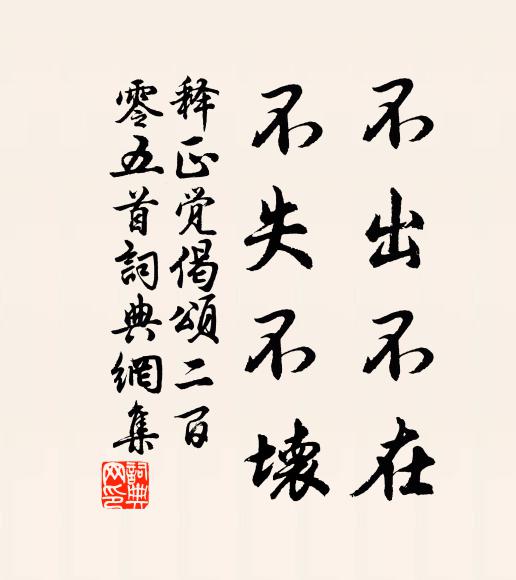 不出不在
不失不壞
释正覚偈頌二百
零五首詞典網集
詞典网印